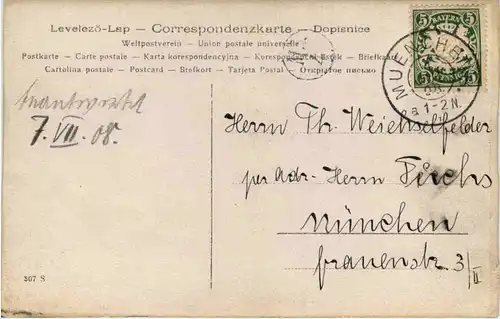 Levelező-Lap — Correspondenzkarte — Dopisnice
Weltpostverein — Union postale universelle
Postkarte — Carte postale — Karta korespondencyjna — Korespondenční lístek — Briefkaart
Cartolina postale — Postcard — Brefkort — Tarjeta Postal — Открытое письмо
BAYERN
5 5
5 PFENNIG 5
MUENCHEN
1-2N.
beantwortet
7. VII. 08.
Herrn Th. Weichselfelder
per Adr. Herrn Fuchs
München
frauenstr. 3/II
307 S